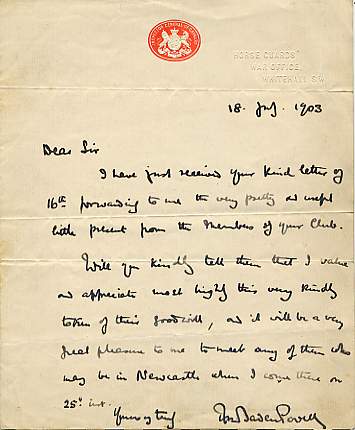 HORSE GUARDS
WAR OFFICE,
WHITEHALL S.W.
18. July. 1903
Dear Sir
I have just received your kind letter of
16th forwarding to me the very pretty and useful
little present from the Members of your Club.
Will you kindly tell them that I value
and appreciate most highly this very kindly
token of their goodwill, and it will be a very
great pleasure to me to meet any of them who
may be in Newcastle when I come there on
25th inst.
Yours truly
Baden Powell